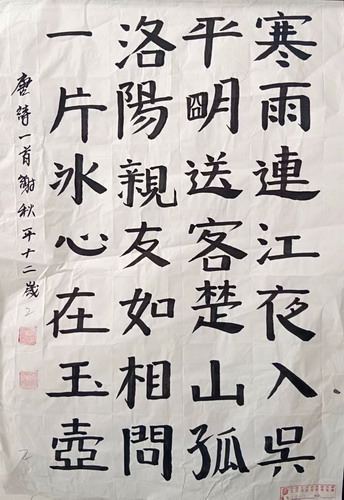 寒雨連江夜入吳
平明送客楚山孤
洛陽親友如相問
一片冰心在玉壺
唐詩一首 謝秋平十二歲